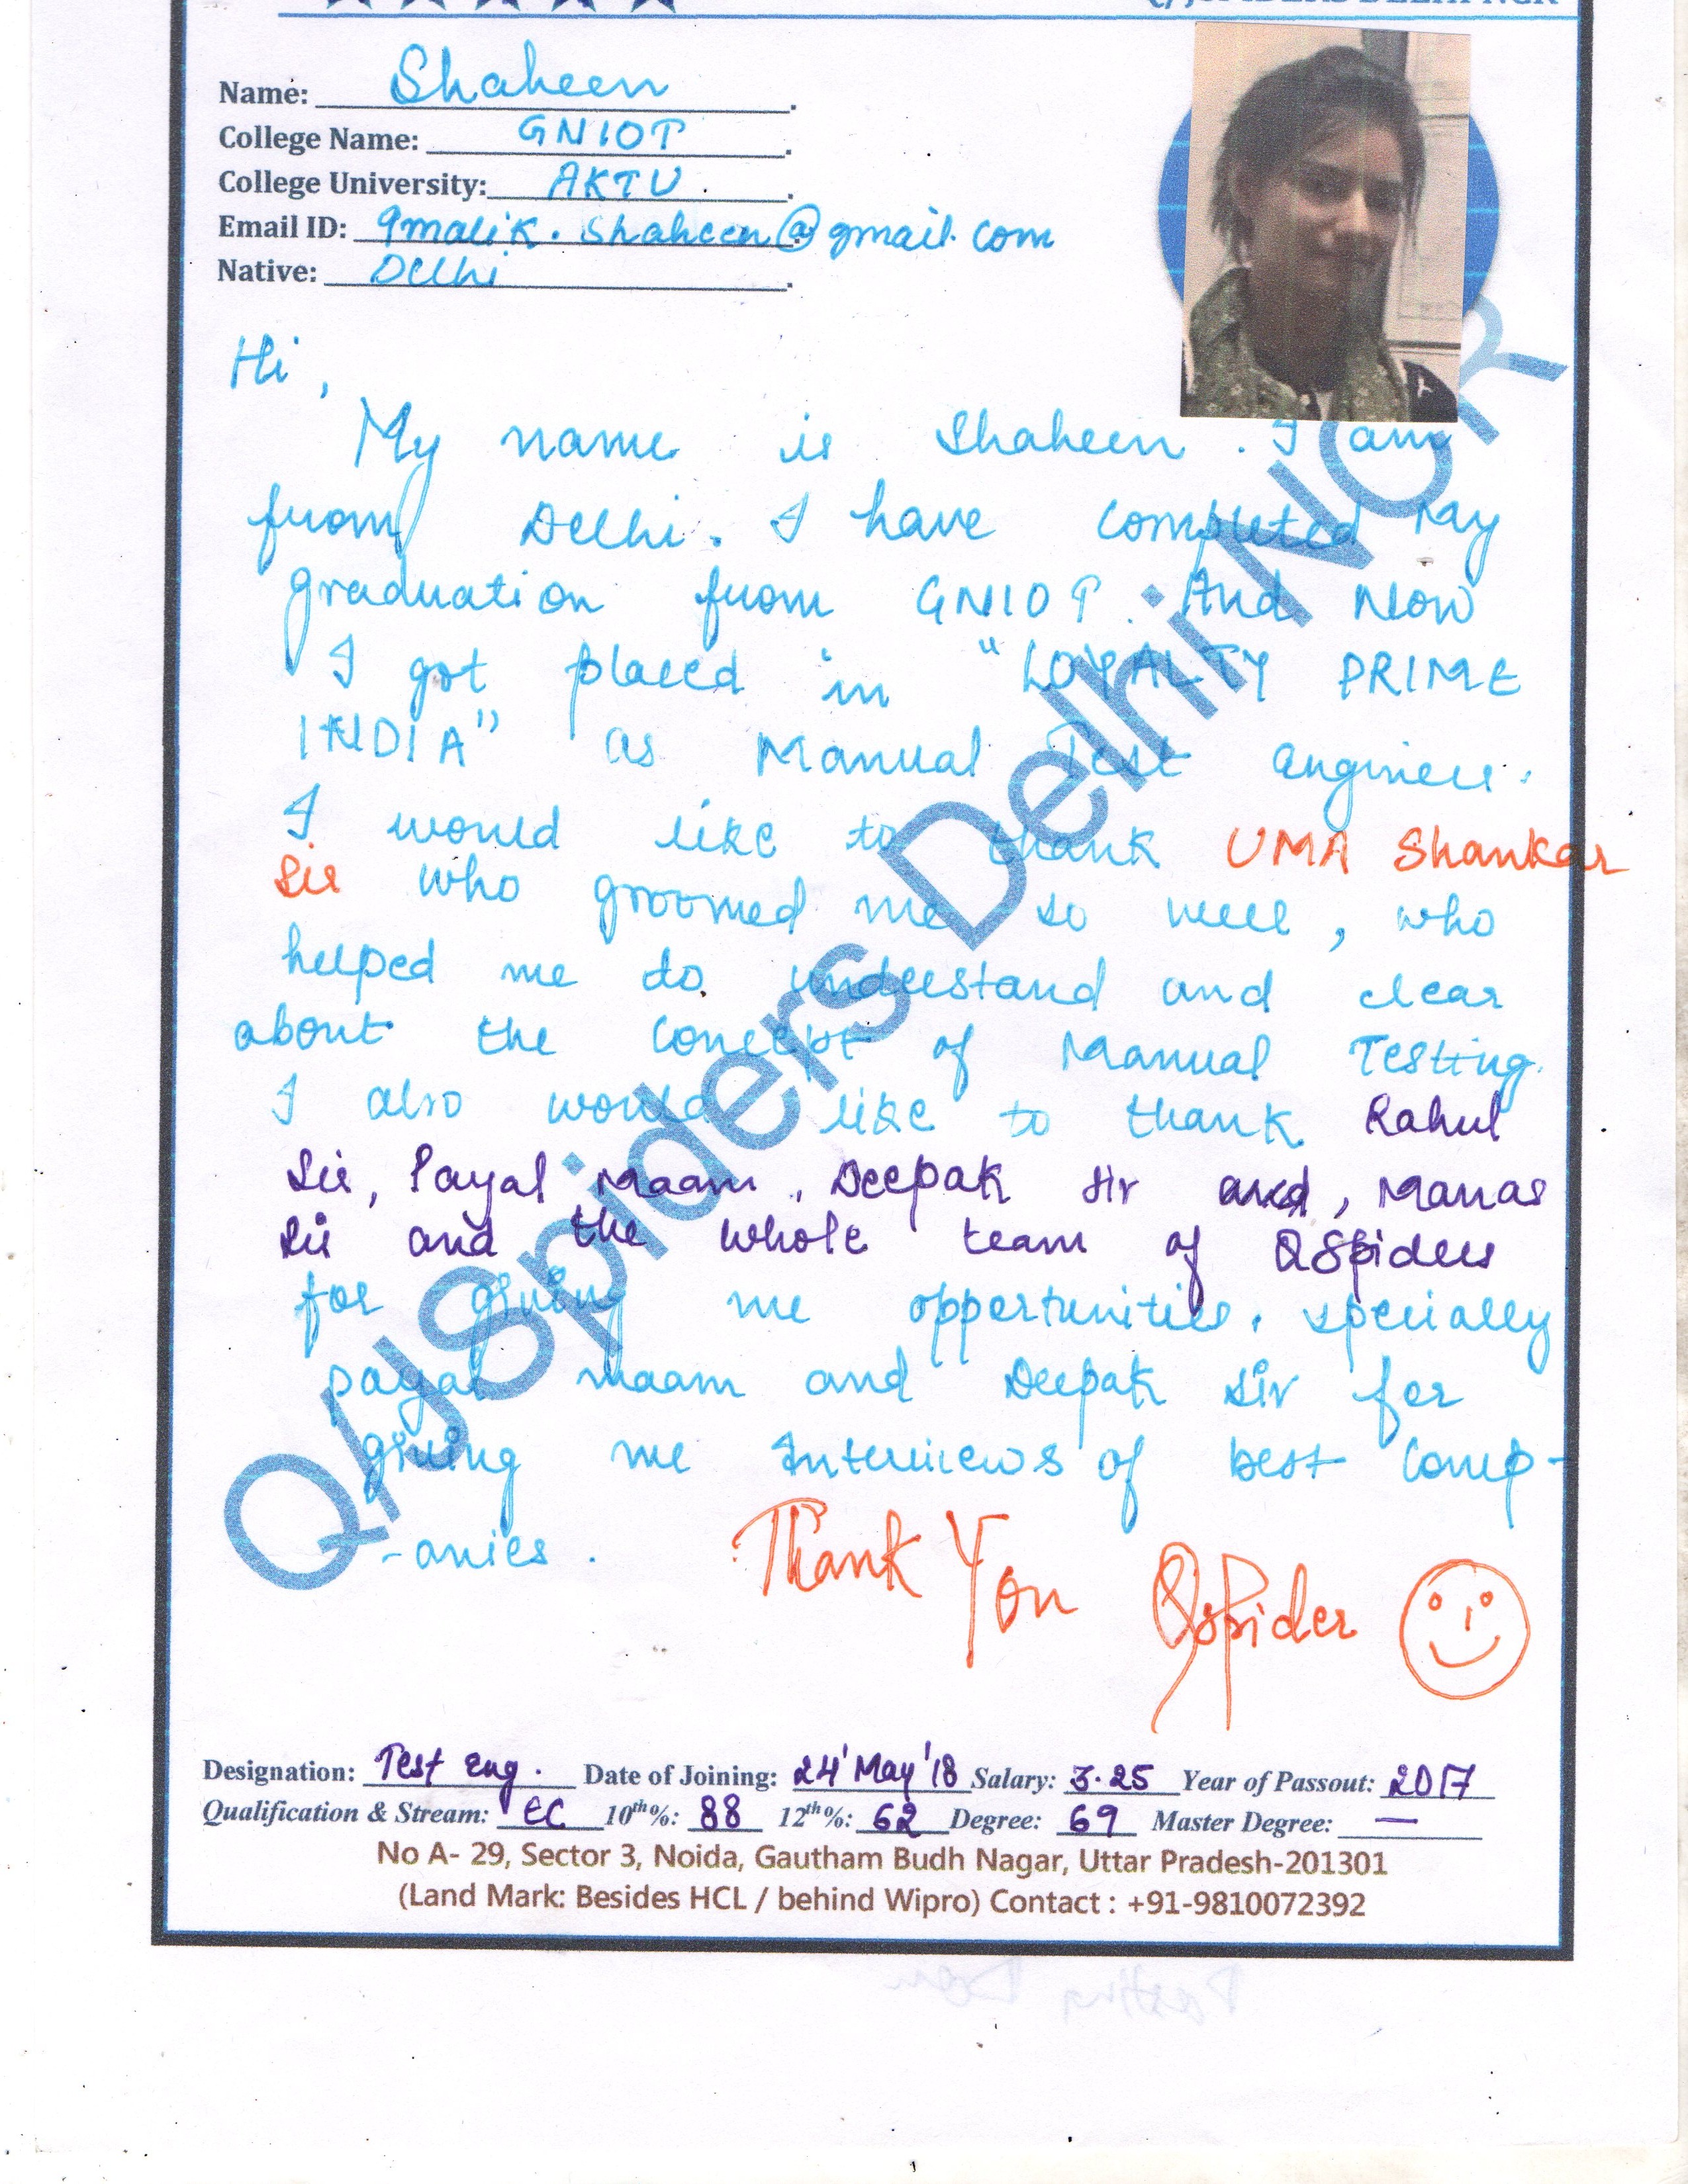 Q/JSPIDERS DELHI NCR
Name: Shaheen
College Name: GNIOT
College University: AKTU
Email ID: 9malik.shaheen@gmail.com
Native: Delhi
Hi,
My name is Shaheen. I am
from Delhi. I have completed my
graduation from GNIOT. And Now
I got placed in "LOYALTY PRIME
INDIA" as Manual Test engineer.
I would like to thank UMA Shankar
Sir who groomed me so well, who
helped me to understand and clear
about the concept of Manual Testing.
I also would like to thank Rahul
Sir, Payal Maam, Deepak sir and, Manas
Sir and the whole team of QSpiders
for giving me opportunities. specially
payal maam and Deepak sir for
giving me Interviews of best comp-
-anies.
Thank You Qspider
Designation: Test eng. Date of Joining: 24'May'18 Salary: 3.25 Year of Passout: 2017
Qualification & Stream: EC 10th%: 88 12th%: 62 Degree: 69 Master Degree: —
No A- 29, Sector 3, Noida, Gautham Budh Nagar, Uttar Pradesh-201301
(Land Mark: Besides HCL / behind Wipro) Contact : +91-9810072392
Q/JSpiders Delhi NCR